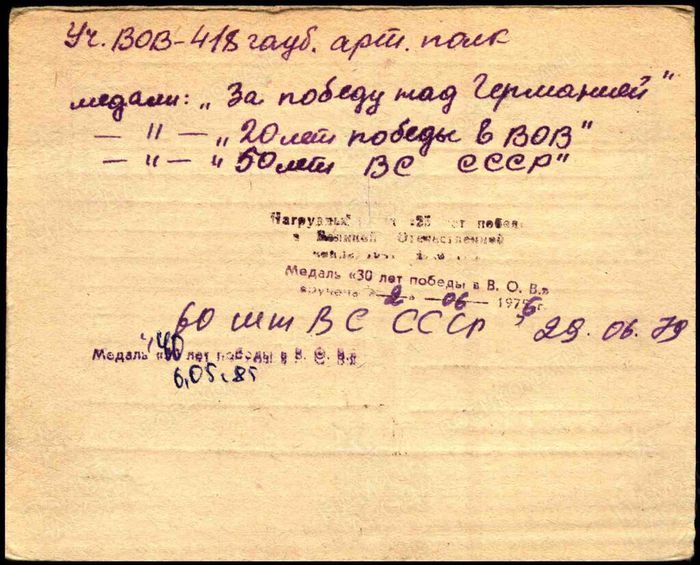 Уч. ВОВ-418 гауб. арт. полк
медали: „За победу над Германией"
— " — „20 лет победы в ВОВ"
— " — „50 лет ВС СССР"
Нагрудный 25 лет побе
в Великой Отечественной
Медаль «30 лет победы в В. О. В.»
вручена «2» 06 1976 г.
60 лет ВС СССР 29.06.79
Медаль «40 лет победы в В. О. В.»
6.05.85